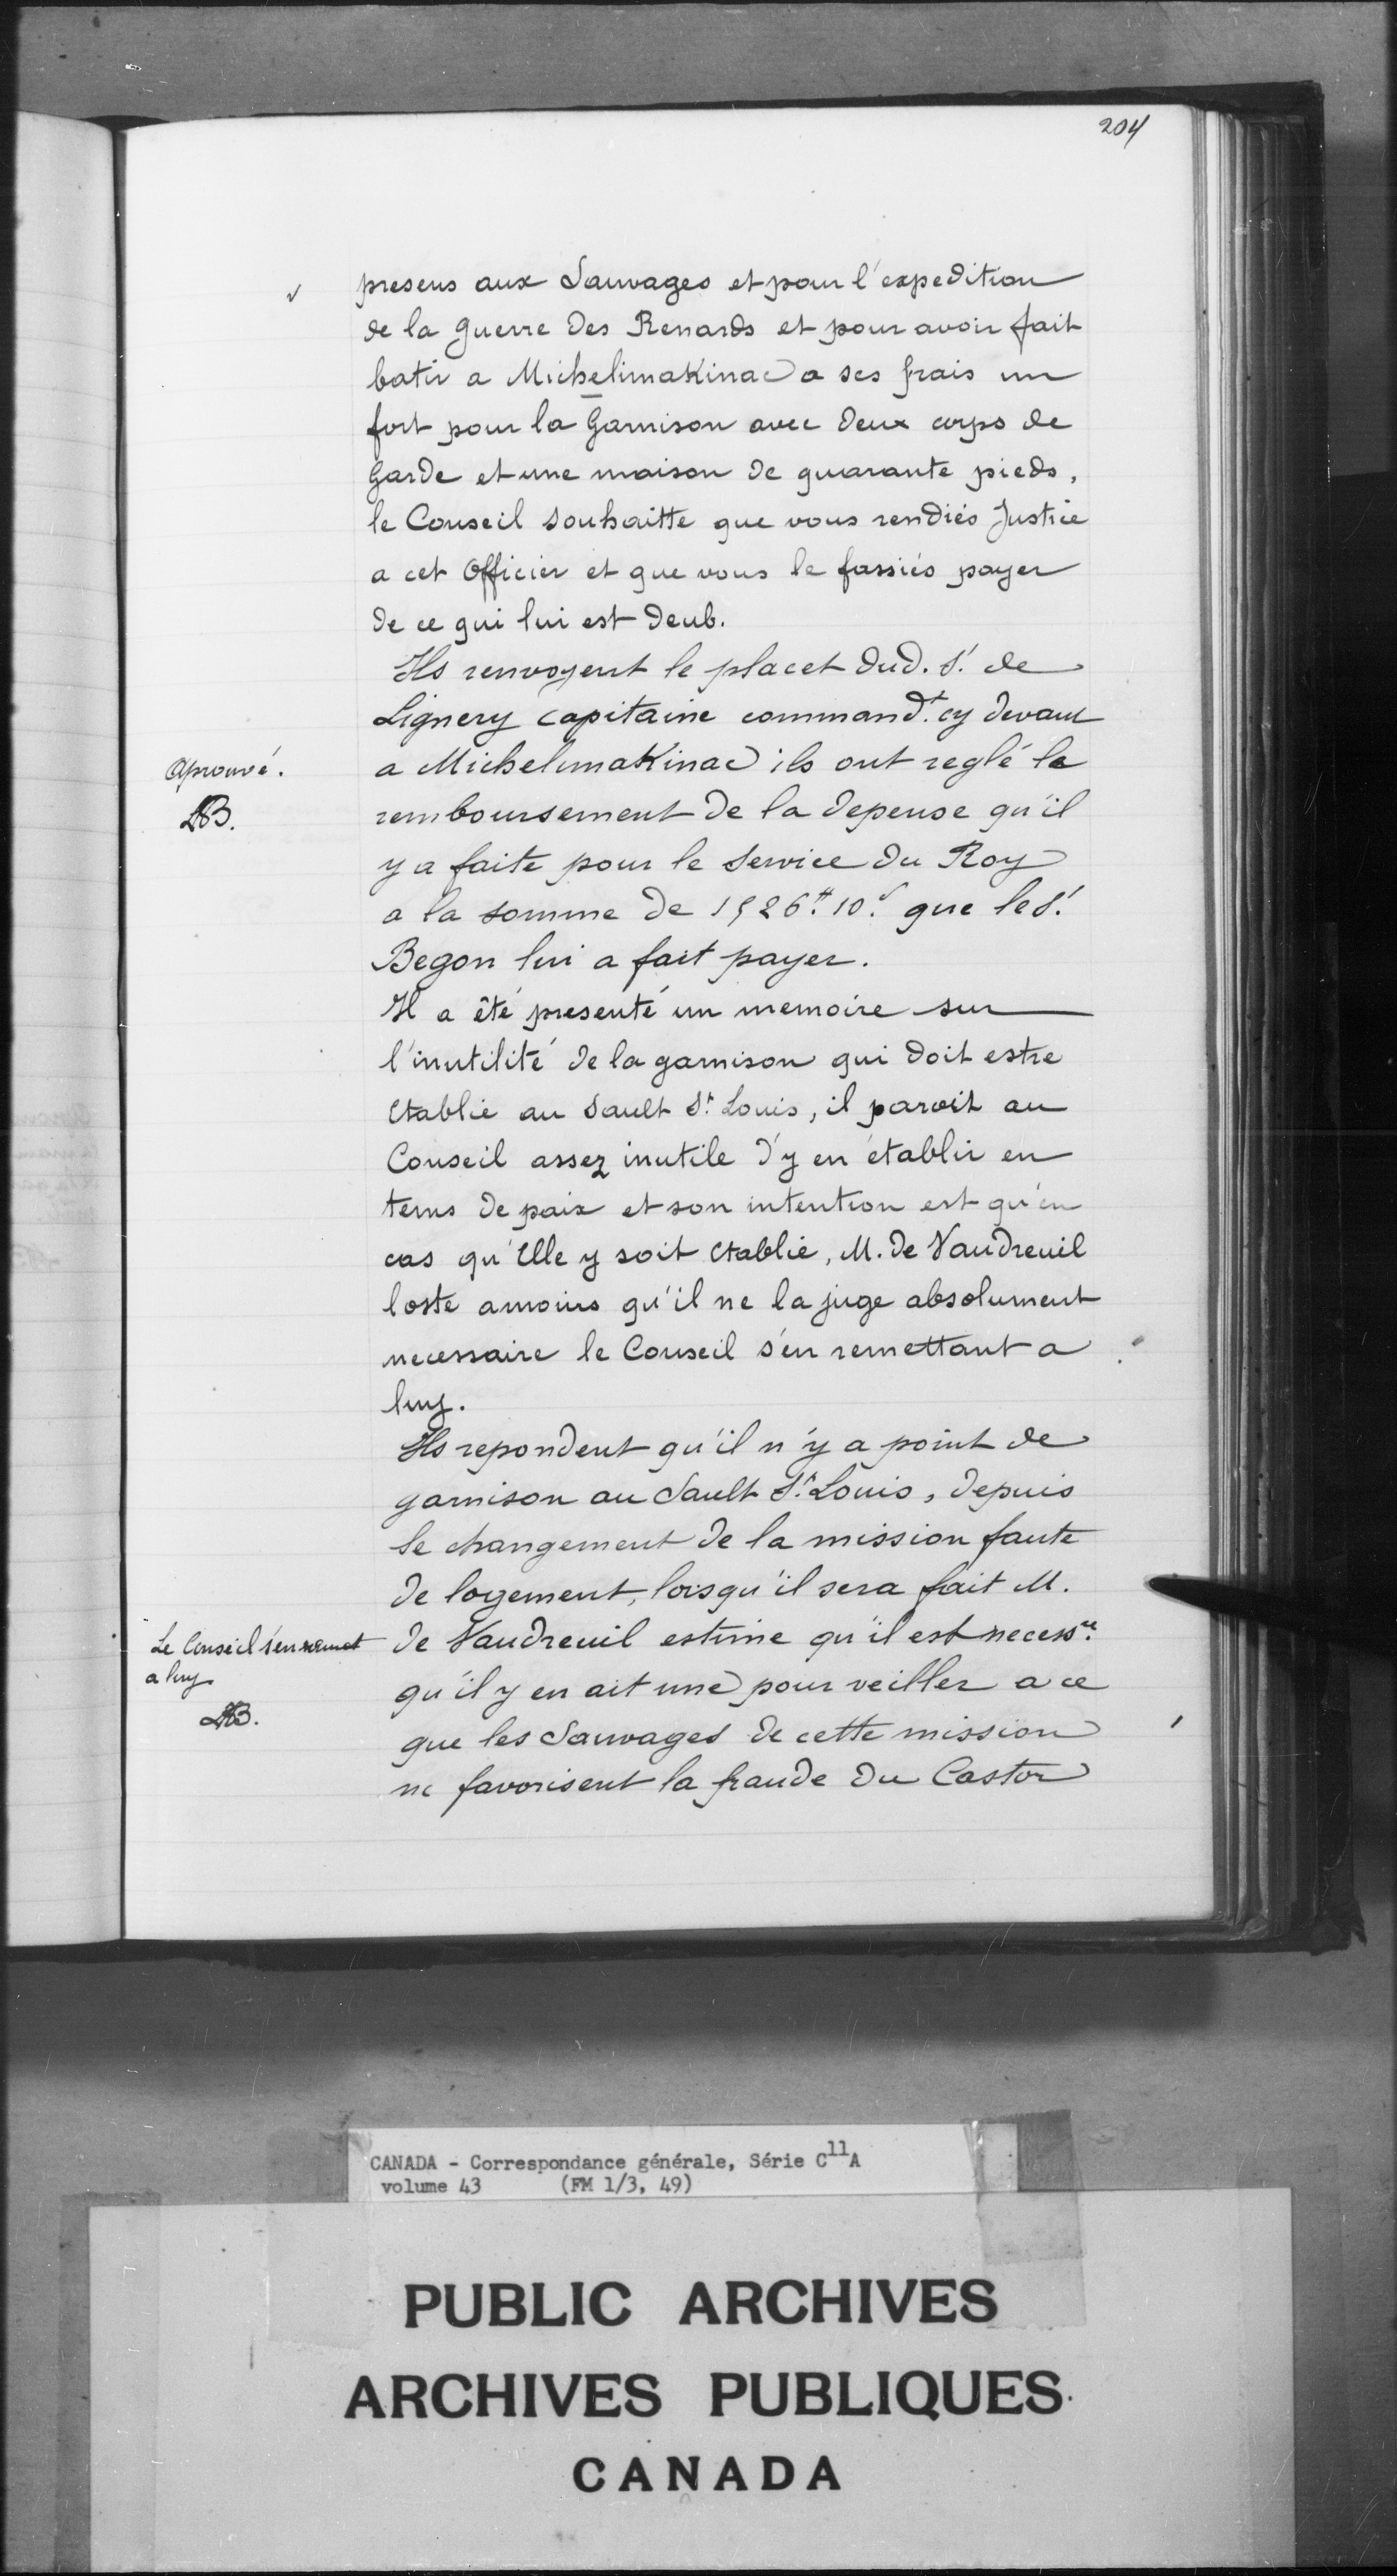 204
presens aux Sauvages et pour l'expedition
de la guerre des Renards et pour avoir fait
batir a Michelimakinac a ses frais un
fort pour la Garnison avec deux corps de
Garde et une maison de quarante pieds,
le Conseil souhaitte que vous rendiés Justice
a cet Officier et que vous le fassiés payer
de ce qui lui est deub.
Ils renvoyent le placet dud. Sr. de
Lignery Capitaine command.t cy devant
a Michelimakinac ils ont reglé le
Aprouvé.
LAB.
remboursement de la depense qu'il
y a faite pour le Service du Roy
a la somme de 1526.# 10.s que le Sr.
Begon lui a fait payer.
Il a été presenté un memoire sur
l'inutilité de la garnison qui doit estre
Etablie au Sault St. Louis, il paroit au
Conseil assez inutile d'y en établir en
tems de paix et son intention est qu'en
cas qu'Elle y soit Etablie, M. de Vaudreuil
loste amoins qu'il ne la juge absolument
necessaire le Conseil s'en remettant a
luy.
Ils repondent qu'il n'y a point de
garnison au Sault St. Louis, depuis
le changement de la mission faute
de logement, lorsqu'il sera fait M.
de Vaudreuil estime qu'il est necess.re
Le Conseil s'en remet
a luy
LAB.
qu'il y en ait une pour veiller a ce
que les Sauvages de cette mission
ne favorisent la fraude du Castor
CANADA - Correspondance générale, Série C11A
volume 43 (FM 1/3, 49)
PUBLIC ARCHIVES
ARCHIVES PUBLIQUES
CANADA